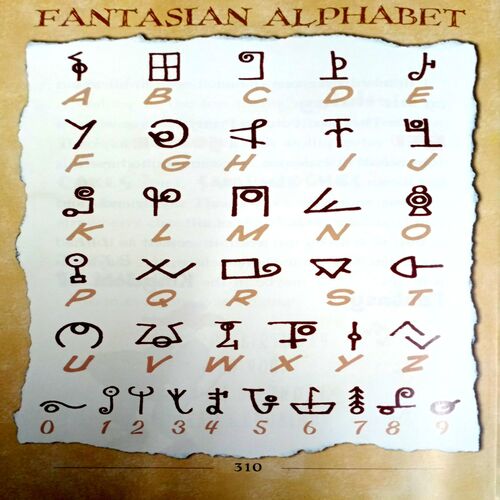 FANTASIAN ALPHABET
A B C D E
F G H I J
K L M N O
P Q R S T
U V W X Y Z
0 1 2 3 4 5 6 7 8 9
310